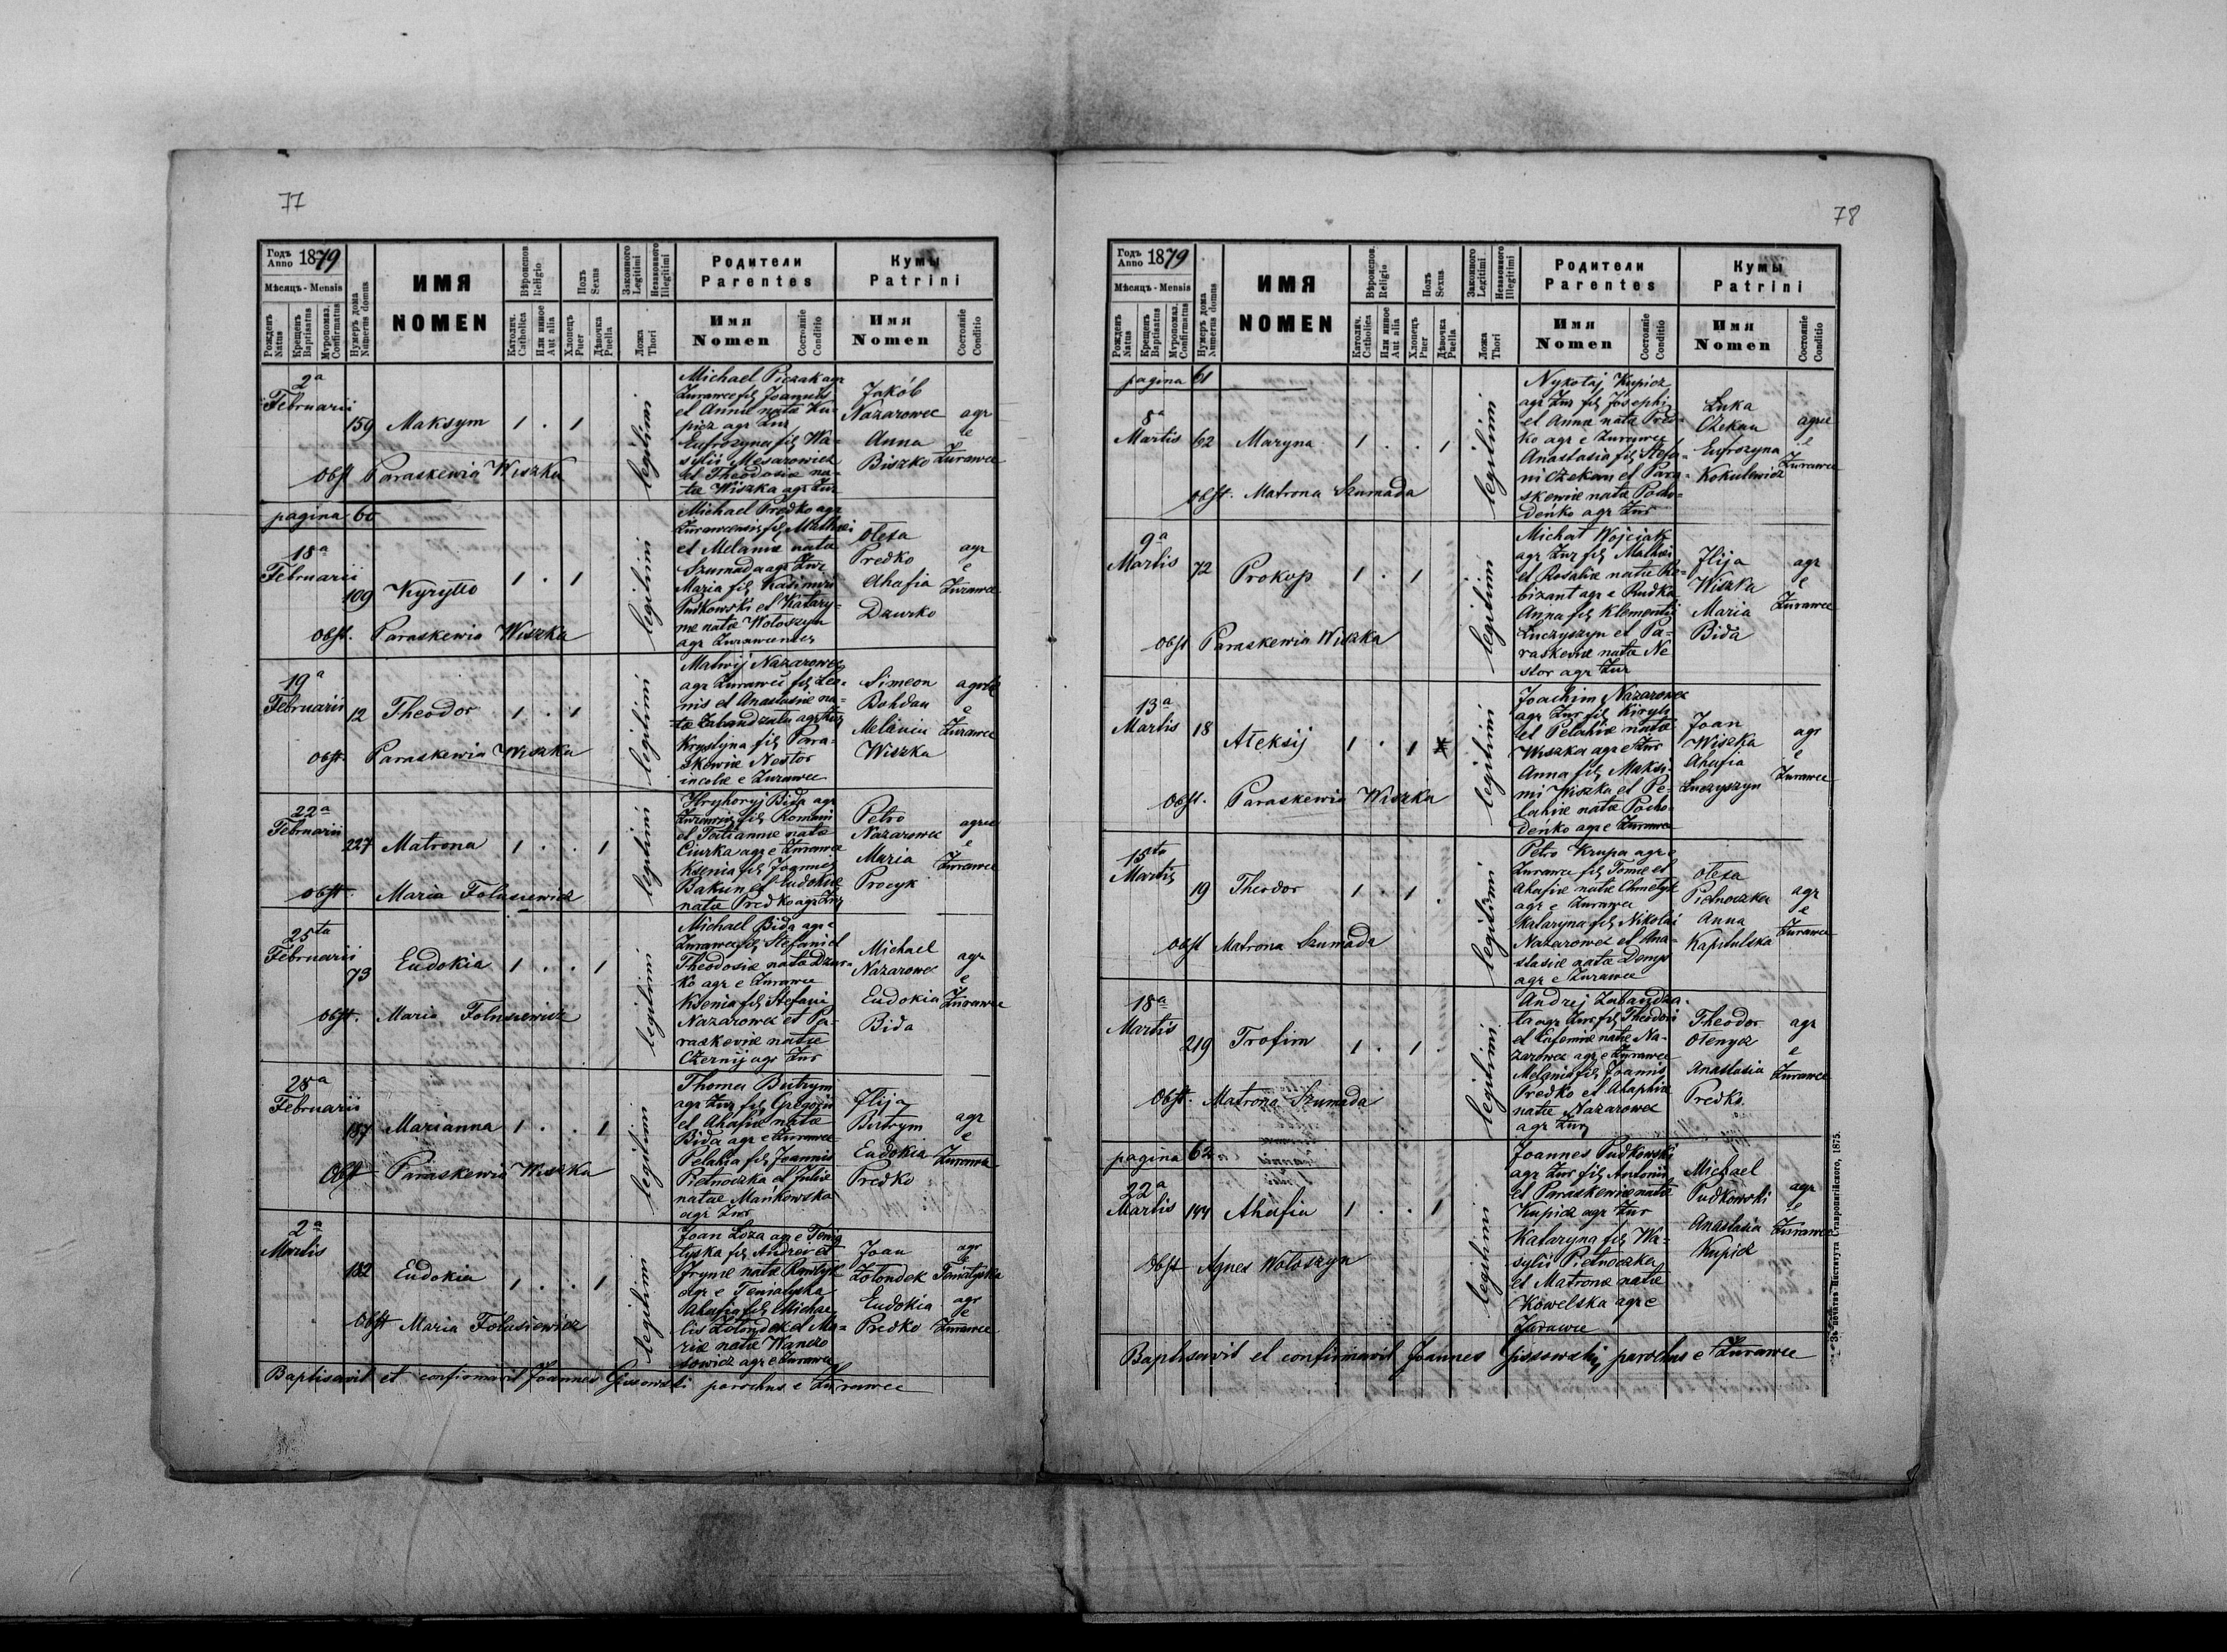 77
Годъ Anno 1879
Мѣсяцъ - Mensis
Рожденъ Natus
Крещенъ Baptisatus
Мѵропомаз. Confirmatus
Нумеръ дома Numerus domus
ИМЯ
NOMEN
Вѣроиспов. Religio
Католич. Catholica
Или инное Aut alia
Полъ Sexus
Хлопецъ Puer
Дѣвочка Puella
Законного Legitimi
Незаконного Illegitimi
Ложа Thori
Родители
Parentes
Имя Nomen
Состояніе Conditio
Кумы
Patrini
Имя Nomen
Состояніе Conditio
2a
Februarii
159 Maksym 1 . 1
Obst Paraskewia Wiszka
legitimi
Michael Piczak agr
Żurawce fil Joannis
et Annae nata Ku-
picz agr Żur
Eufrozyna fil Wa-
sylii Mesarowicz
et Theodosiae na-
ta Wiszka agr Żur
Jakób
Nazarowec
Anna
Biszko
agr
e
Żurawce
pagina 60
18a
Februarii
109 Kyryłło 1 . 1
Obst. Paraskewia Wiszka
legitimi
Michael Predko agr
Żurawcensis fil Mathei
et Melaniae nata
Szumada agr Żur
Maria fil Kasimiri
Pudkowski et Katary-
nae nata Wołoszyn
agr Żurawcensis
Olexa
Predko
Ahafia
Dzurko
agr
e
Żurawce
19a
Februarii
12 Theodor 1 . 1
Obst. Paraskewia Wiszka
legitimi
Matwij Nazarowec
agr Żurawce fil
et Anastasiae na-
ta Zabandzala agr Żur
Krystyna fil Para-
skewiae Nestor
incolae e Żurawce
Simeon
Bohdan
Melania
Wiszka
e
Żurawce
22a
Februarii
227 Matrona 1 . . 1
Obst. Maria Folusiewicz
legitimi
Hryhoryj Bida agr
Żurawce fil Romani
et Tatiannae nata
Ciurka agr e Żurawce
Ksenia fil Joannis
Bakun et Eudokiae
nata Predko agr Żur
Petro
Nazarowec
Maria
Procyk
agr
e
Żurawce
25ta
Februarii
73 Eudokia 1 . . 1
Obst. Maria Folusiewicz
legitimi
Michael Bida agr e
Żurawce fil Stefani et
Theodosiae nata Dzur-
ko agr e Żurawce
Ksenia fil Stefani
Nazarowec et Pa-
raskewiae nata
Czernij agr Żur
Michael
Nazarowec
Eudokia
Bida
agr
e
Żurawce
28a
Februarii
187 Marianna 1 . . 1
Obst Paraskewia Wiszka
legitimi
Thoma Butrym
agr Żur fil Gregorii
et Ahafiae nata
Bida agr e Żurawce
Pelahia fil Joannis
Pietnoczka et Juliae
natae Mańkowska
agr Żur
Ilija
Butrym
Eudokia
Predko
agr
e
Żurawce
2a
Martis
182 Eudokia 1 . . 1
Obst Maria Folusiewicz
legitimi
Joan Łoza agr e
fil Andrei et
Irynae nata
agr e
Ahafia fil Michae-
lis Żołondek et Ma-
riae nata
agr e Żurawce
Joan
Żołondek
Eudokia
Predko
agr
e
agr
e
Żurawce
Baptisavit et confirmavit Joannes Gissowski parochus e Żurawce
78
Годъ Anno 1879
Мѣсяцъ - Mensis
Рожденъ Natus
Крещенъ Baptisatus
Мѵропомаз. Confirmatus
Нумеръ дома Numerus domus
ИМЯ
NOMEN
Вѣроиспов. Religio
Католич. Catholica
Или инное Aut alia
Полъ Sexus
Хлопецъ Puer
Дѣвочка Puella
Законного Legitimi
Незаконного Illegitimi
Ложа Thori
Родители
Parentes
Имя Nomen
Состояніе Conditio
Кумы
Patrini
Имя Nomen
Состояніе Conditio
pagina 61
8a
Martis
62 Maryna 1 . . 1
Obst. Matrona Szumada
legitimi
Nykołaj Kupicz
agr Żur fil Josephi
et Annae nata Pred-
ko agr e Żurawce
Anastasia fil Stefa-
ni Czekan et Para-
skewiae nata Pocho-
deńko agr Żur
Luka
Czekan
Eufrozyna
Kokulewicz
e
Żurawce
9a
Martis
72 Prokop 1 . 1
Obst Paraskewia Wiszka
legitimi
Michał Wojciak
agr Żur fil Mathei
et Rosaliae nata
agr e Rudka
Anna fil Klementis
Łuczyszyn et Pa-
raskewiae nata Ne
stor agr Żur
Ilija
Wiszka
Maria
Bida
agr
e
Żurawce
13a
Martis
18 Ałeksij 1 . 1
Obst. Paraskewia Wiszka
legitimi
Joachim Nazarowec
agr Żur fil Kiryli
et Pelahiae nata
Wiszka agr e Żur
Anna fil Maksi-
mi Wiszka et Pe-
lahiae nata Pocho-
deńko agr e Żurawce
Joan
Wiszka
Ahafia
Łuczyszyn
agr
e
Żurawce
15ta
Martis
19 Theodor 1 . 1 .
Obst Matrona Szumada
legitimi
Petro Krupa agr e
Żurawce fil Tomae et
Ahafiae nata
agr e Żurawce
Kataryna fil Nikolai
Nazarowec et Ana-
stasiae nata Demys
agr e Żurawce
Olexa
Pietnoczka
Anna
Kapitulska
agr
e
Żurawce
18a
Martis
219 Trofim 1 . 1 .
Obst. Matrona Szumada
legitimi
Andrej Zabandza-
ła agr Żur fil Theodori
et Eufemiae nata Na-
zarowec agr e Żurawce
Melania fil Joannis
Predko et Ahaphiae
nata Nazarowec
agr Żur
Theodor
Ołenycz
Anastasia
Predko
agr
e
Żurawce
pagina 62
22a
Martis
144 Ahafia 1 . . 1
Obst Agnes Wołoszyn
legitimi
Joannes Pudkowski
agr Żur fil Antonii
et Paraskewiae nata
Kupicz agr Żur
Kataryna fil Wa-
sylii Pietnoczka
et Matronae nata
Kowelska agr e
Żurawce
Michael
Pudkowski
Anastasia
Kupicz
agr
e
Żurawce
Baptisavit et confirmavit Joannes Gissowski parochus e Żurawce
Зъ печатнѣ Института Ставропигійского, 1875.